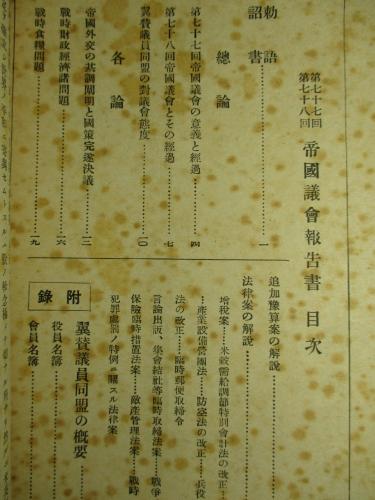 第七十七回
第七十八回
帝國議會報告書 目次
勅語
詔書……一
總論
第七十七回帝國議會の意義と經過……四
第七十八回帝國議會とその經過……七
翼賛議員同盟の對議會態度……一〇
各論
帝國外交の基調闡明と國策完遂決議……一三
戰時財政經濟諸問題……一六
戰時食糧問題……一九
追加豫算案の解說
法律案の解說
增稅案……米穀需給調節特別會計法の改正
……產業設備營團法……防空法の改正……兵役
法の改正……臨時郵便取締令
言論出版、集會結社等臨時取締法案……戰爭
保險臨時措置法案……敵產管理法案……戰時
犯罪處罰ノ特例ニ關スル法律案
附錄
翼賛議員同盟の槪要
役員名簿
會員名簿